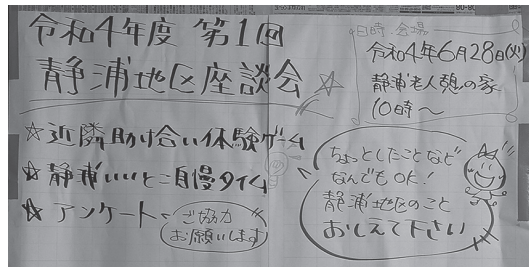 令和4年度 第1回
静浦地区座談会
日時・会場
令和4年6月28日(火)
静浦老人憩の家
10時〜
☆近隣助け合い体験ゲーム
☆静浦いいとこ自慢タイム
☆アンケート
ご協力
お願いします
ちょっとしたことなど
なんでもOK!
静浦地区のこと
おしえて下さい